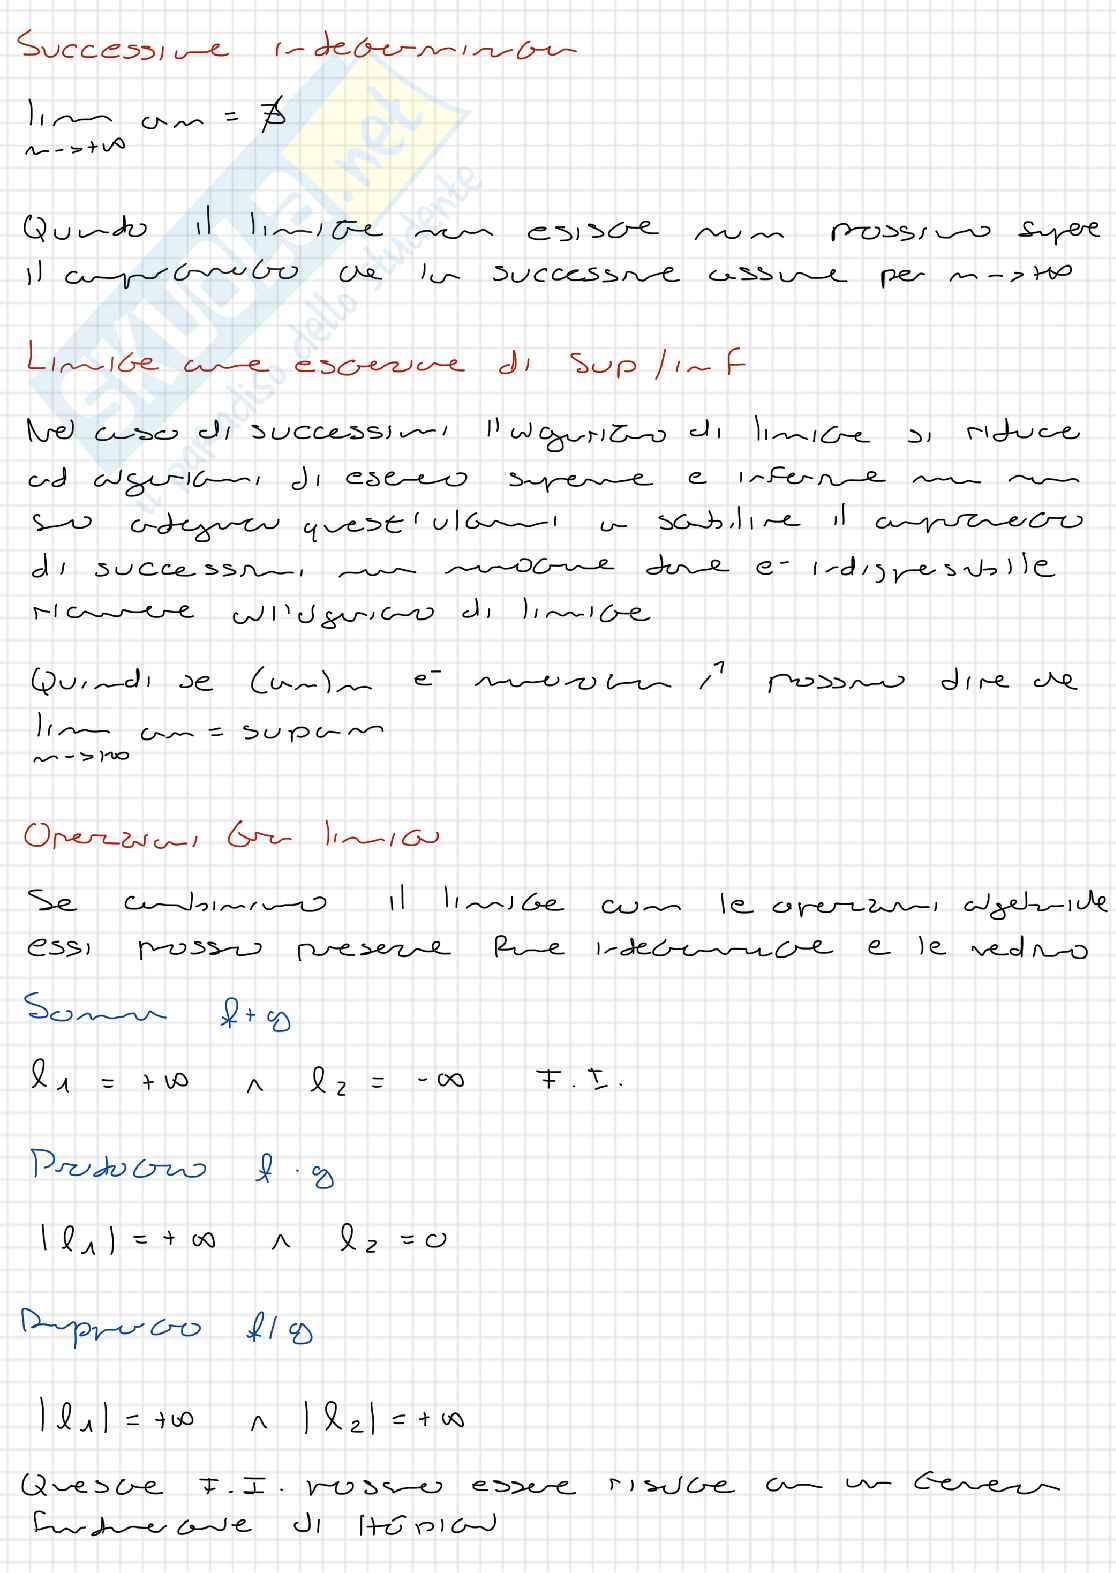 Successioni indeterminate
lim an = ∄
n->+∞
Quando il limite non esiste non possiamo sapere
il comportamento che la successione assume per n->+∞
Limite come estensione di sup/inf
Nel caso di successioni l'algoritmo di limite si riduce
ad algoritmi di estremo superiore e inferiore ma non
sono adeguati quest'ultimi a stabilire il comportamento
di successioni non monotone dove e- indispensabile
ricorrere all'algoritmo di limite
Quindi se (an)n e- monotona ↗ possiamo dire che
lim an = supan
n->+∞
Operazioni tra limiti
Se combiniamo il limite con le operazioni algebriche
essi possono presentare forme indeterminate e le vedremo
Somma f+g
l1 = +∞ ∧ l2 = -∞ F.I.
Prodotto f·g
|l1| = +∞ ∧ l2 = 0
Rapporto f/g
|l1| = +∞ ∧ |l2| = +∞
Queste F.I. possono essere risolte con un teorema
fondamentale di Hôpital
SKUOLA.net
il paradiso dello studente